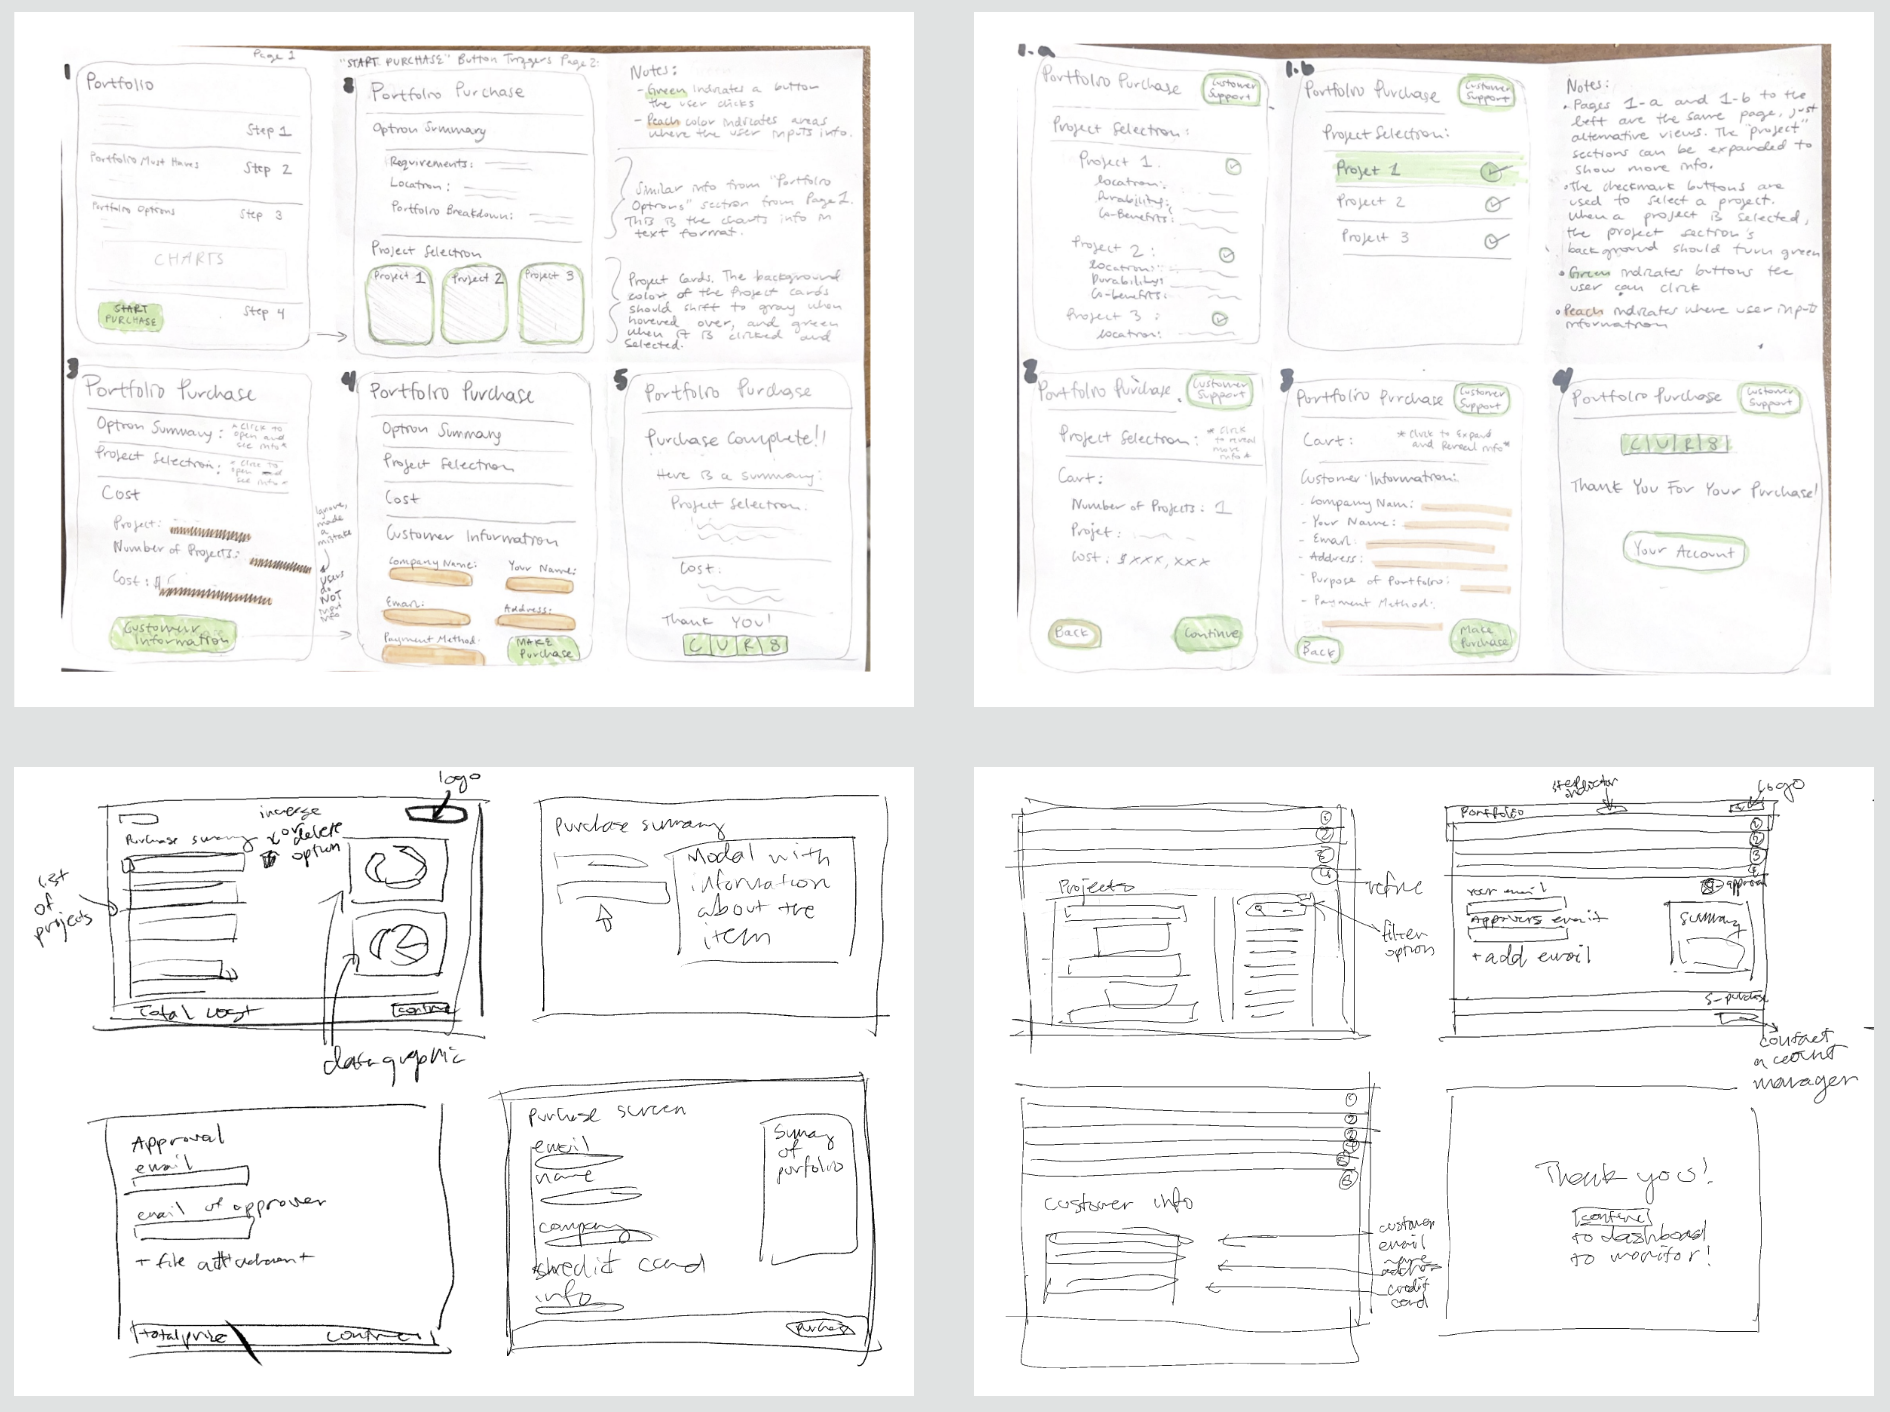 Page 1
"START PURCHASE" Button Triggers Page 2:
1
Portfolio
Step 1
Portfolio Must Haves
Step 2
Portfolio Options
Step 3
CHARTS
START
PURCHASE
Step 4
2
Portfolio Purchase
Option Summary
Requirements:
Location:
Portfolio Breakdown:
Project Selection
Project 1
Project 2
Project 3
Notes:
- Green indicates a button
the user clicks
- Peach color indicates areas
where the user inputs info.
Similar info from "Portfolio
Options" section from Page 1.
This is the charts info in
text format.
Project Cards. The background
color of the Project cards
should shift to gray when
hovered over, and green
when it is clicked and
selected.
3
Portfolio Purchase
Option Summary:
*Click to
open and
see info*
Project Selection:
*Click to
open and
see info*
Cost
Project:
Number of Projects:
Cost: $
Customer
Information
Ignore,
made
a
mistake
users
do
NOT
input
info
4
Portfolio Purchase
Option Summary
Project Selection
Cost
Customer Information
Company Name:
Your Name:
Email:
Address:
Payment Method:
MAKE
Purchase
5
Portfolio Purchase
Purchase Complete!!
Here is a summary:
Project Selection
Cost:
Thank You!
CUR8
1.a
Portfolio Purchase
Customer
Support
Project Selection:
Project 1
Location:
Durability:
Co-Benefits:
Project 2:
Location:
Durability:
Co-benefits:
Project 3
Location:
1.b
Portfolio Purchase
Customer
Support
Project Selection:
Projet 1
Project 2
Project 3
Notes:
• Pages 1-a and 1-b to the
left are the same page, just
alternative views. The "project"
sections can be expanded to
show more info.
• The checkmark buttons are
used to select a project.
When a project is selected,
the project section's
background should turn green
• Green indicates buttons the
user can click
• Peach indicates where user input
information
2
Portfolio Purchase
Customer
Support
Project Selection:
*Click
to reveal
more
info*
Cart:
Number of Projects: 1
Projet:
Cost: $xxx,xxx
Back
Continue
3
Portfolio Purchase
Customer
Support
Cart:
*Click to Expand
and Reveal info*
Customer Information:
- Company Name:
- Your Name:
- Email:
- Address:
- Purpose of Portfolio:
- Payment Method:
Back
Make
Purchase
4
Portfolio Purchase
Customer
Support
CUR8
Thank You For Your Purchase!
Your Account
logo
increase
or
delete
option
Purchase sumary
list
of
projects
Total cost
continue
data graphic
Purchase sumary
Modal with
information
about the
item
Approval
email
email of approver
+ file attachment
total price
continue
Purchase screen
email
name
company
credit card
info
Sumary
of
porfolio
purchase
1
2
3
4
refine
Projects
filter
option
indicator
Logo
Portfolio
1
2
3
4
approval
Your email
Approvers email
+add email
summary
5-purchase
contact
account
manager
1
2
6
customer info
customer
email
name
address
credit
card
Thank you!
continue
to dashboad
to monitor!